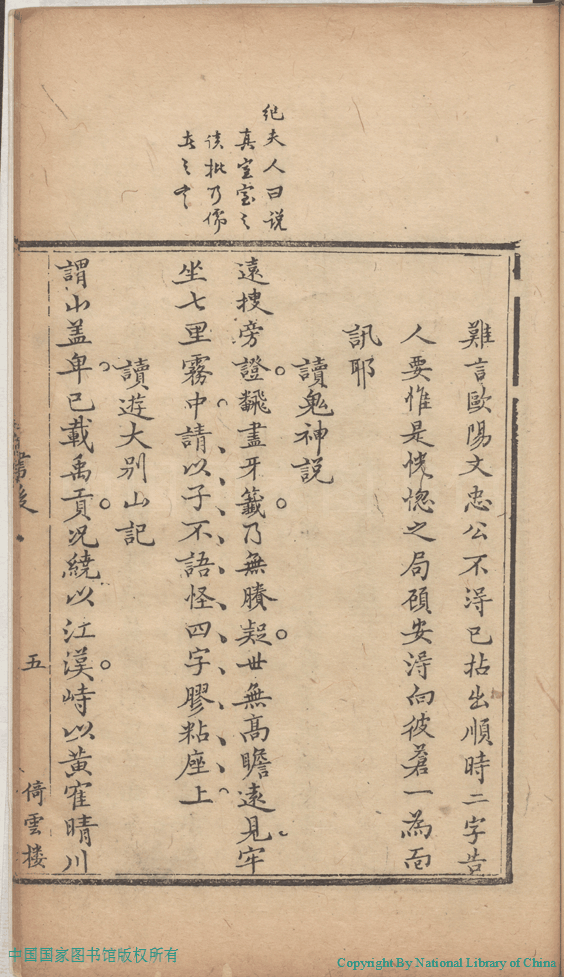 紀夫人曰说
真室室〻
读批乃儒
難言歐陽文忠公不淂已拈出順時二字告
人要惟是恍惚之局頋安淂向彼蒼一為面
訊耶
讀鬼神説
遠搜旁證飜盡牙籤乃無賸疑世無高瞻遠見牢
坐七里霧中請以子不語怪四字膠粘座上
讀遊大别山記
謂山盖卑已載禹貢况繞以江漢峙以黄寉晴川
書後
五
倚雲楼
中国国家图书馆版权所有
Copyright By National Library of China